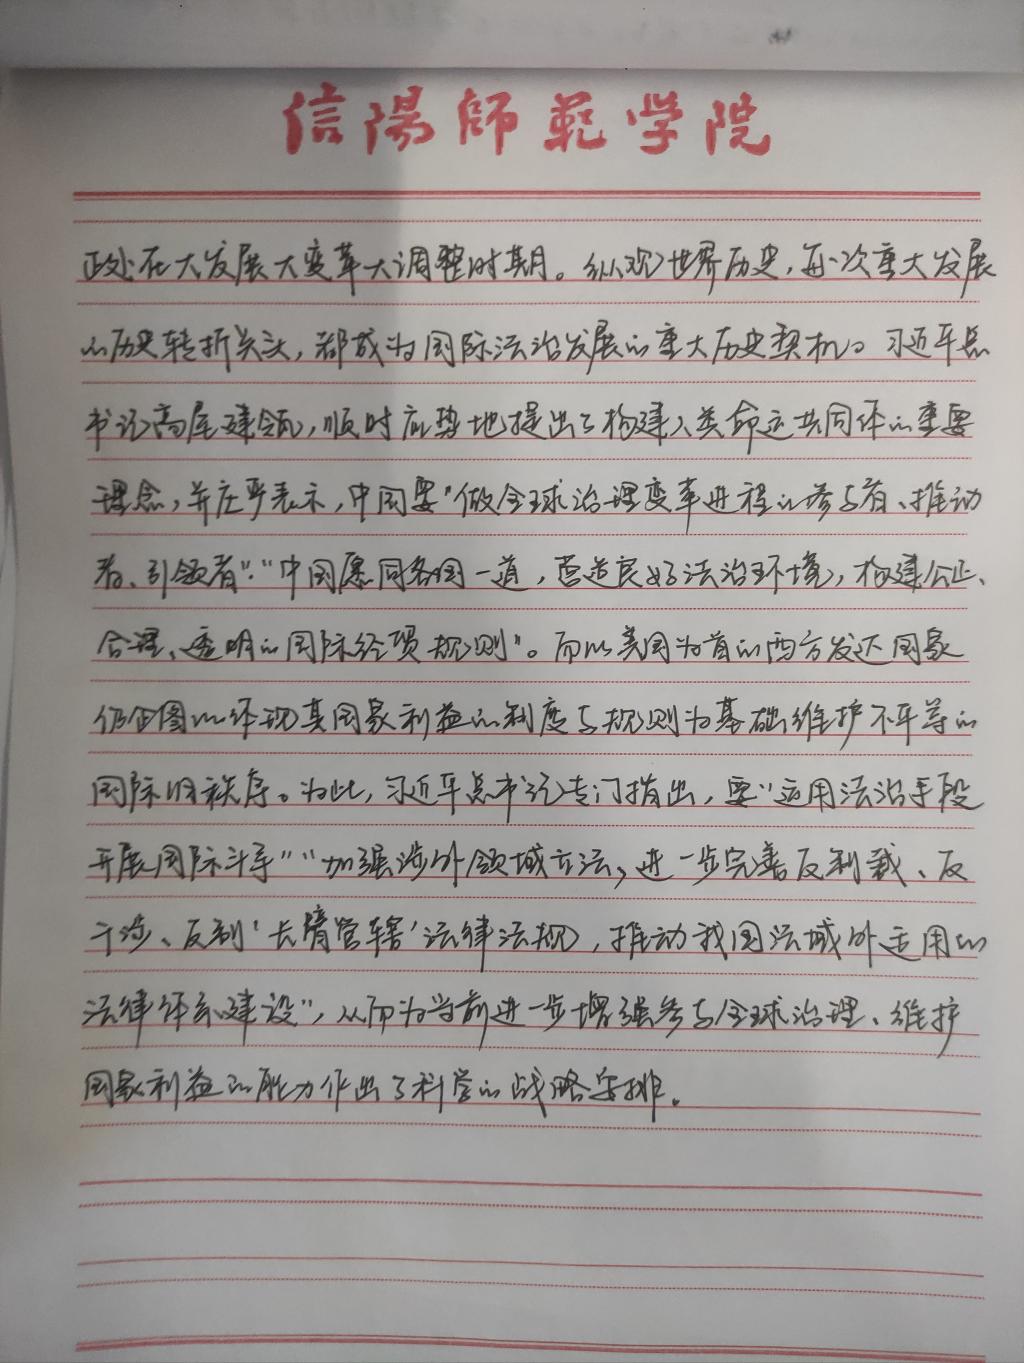 信陽师范学院
正处在大发展大变革大调整时期。纵观世界历史，每一次重大发展
的历史转折关头，都成为国际法治发展的重大历史契机。习近平总
书记高屋建瓴，顺时应势地提出了构建人类命运共同体的重要
理念，并庄严表示，中国要“做全球治理变革进程的参与者、推动
者、引领者”“中国愿同各国一道，营造良好法治环境，构建公正、
合理、透明的国际经贸规则”。而以美国为首的西方发达国家
仍企图以体现其国家利益的制度与规则为基础维护不平等的
国际旧秩序。为此，习近平总书记专门指出，要“运用法治手段
开展国际斗争”“加强涉外领域立法，进一步完善反制裁、反
干涉、反制‘长臂管辖’法律法规，推动我国法域外适用的
法律体系建设”，从而为当前进一步增强参与全球治理、维护
国家利益的能力作出了科学的战略安排。